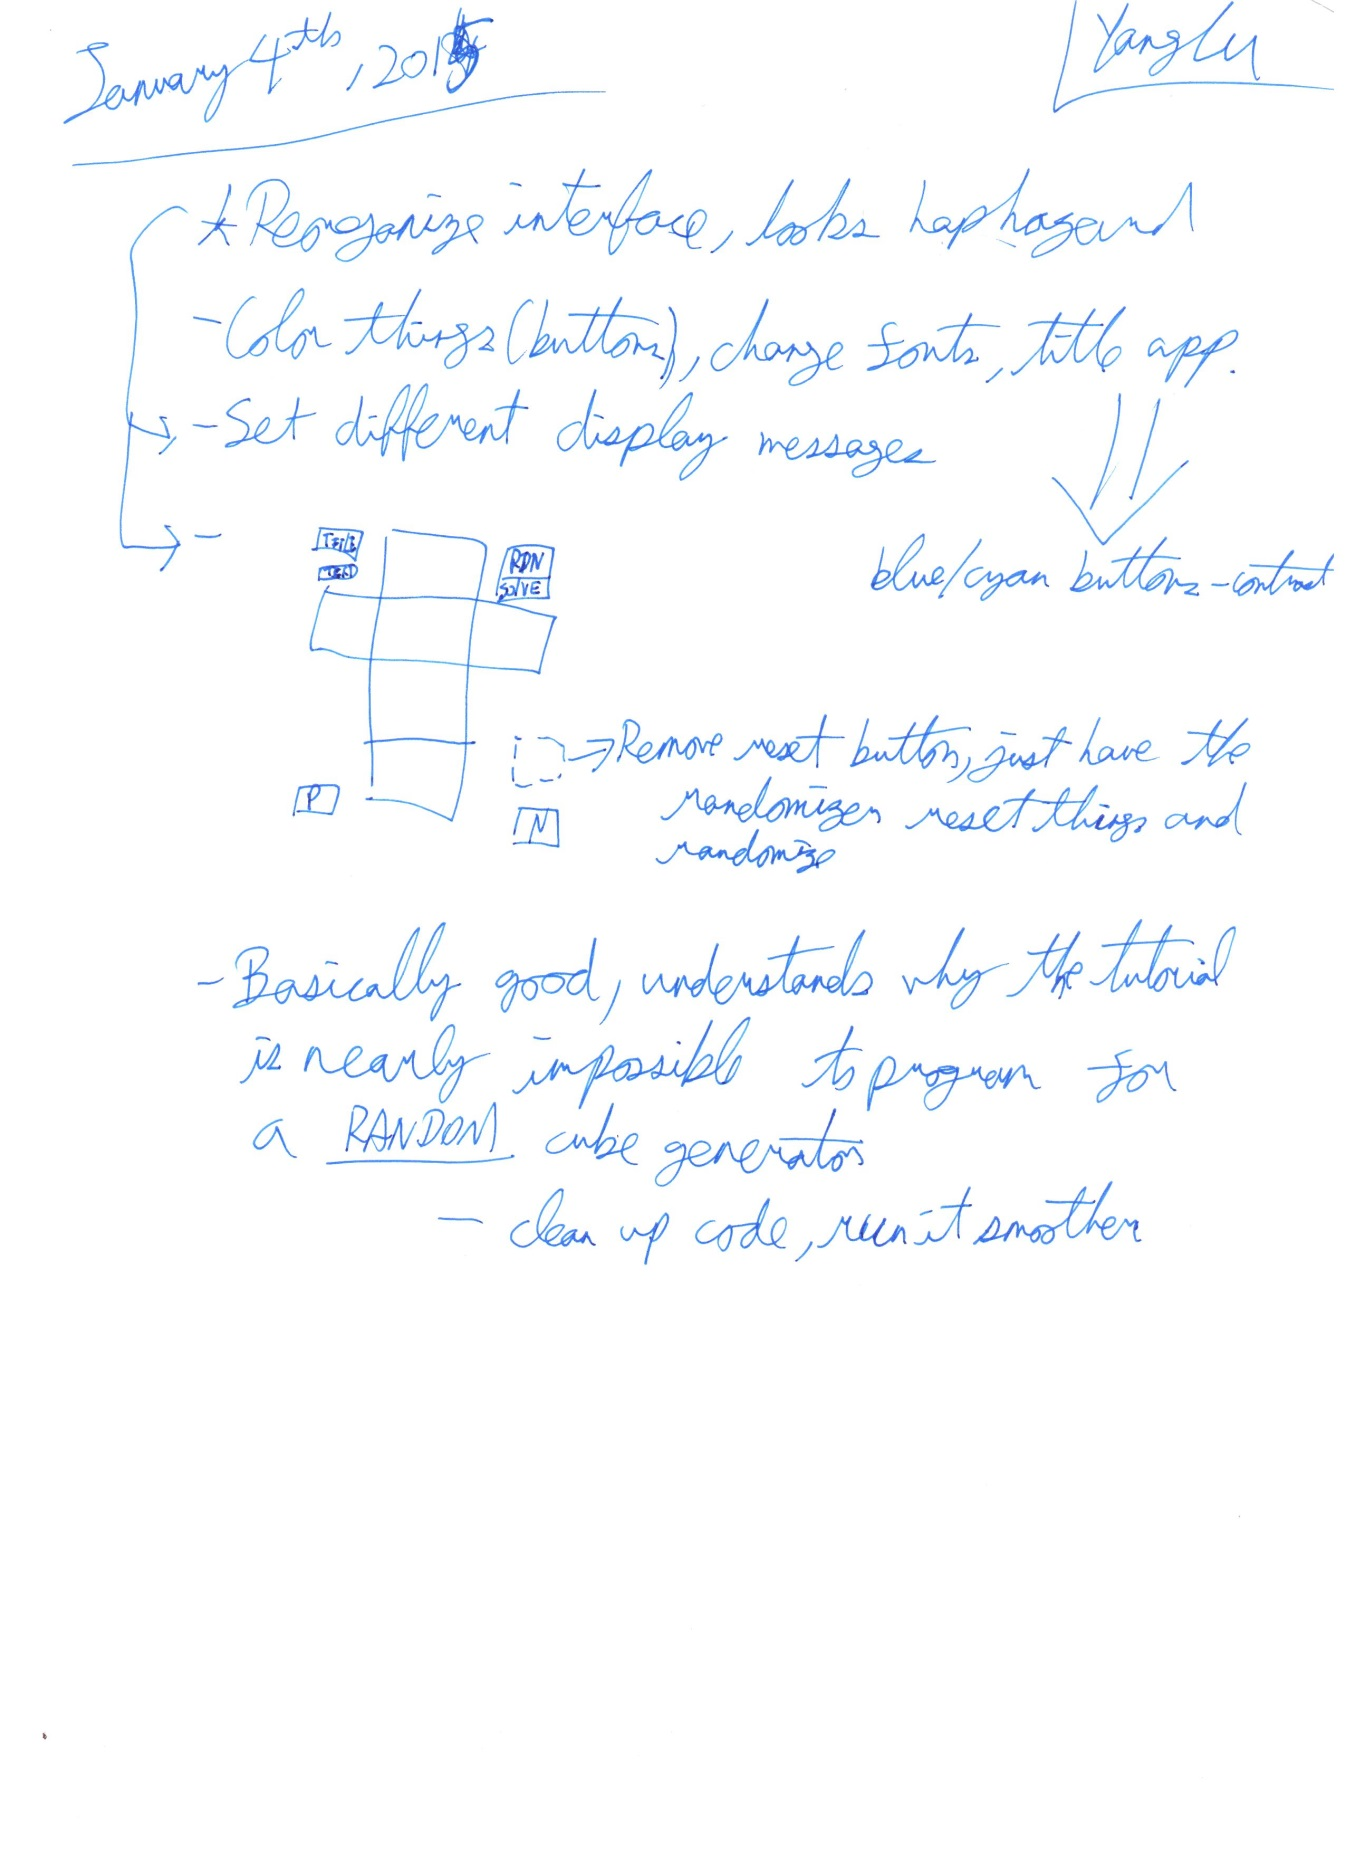 January 4th, 2015
Yang Lu
* Reorganize interface, looks haphazard
- Color things (buttons), change fonts, title app.
- Set different display messages
-
TITLE
TEXT
RDN
SOLVE
blue/cyan buttons - contrast
Remove reset button, just have the
P
randomizer reset things and
N
randomize
- Basically good, understands why the tutorial
is nearly impossible to program for
a RANDOM cube generator
- clean up code, run it smoother